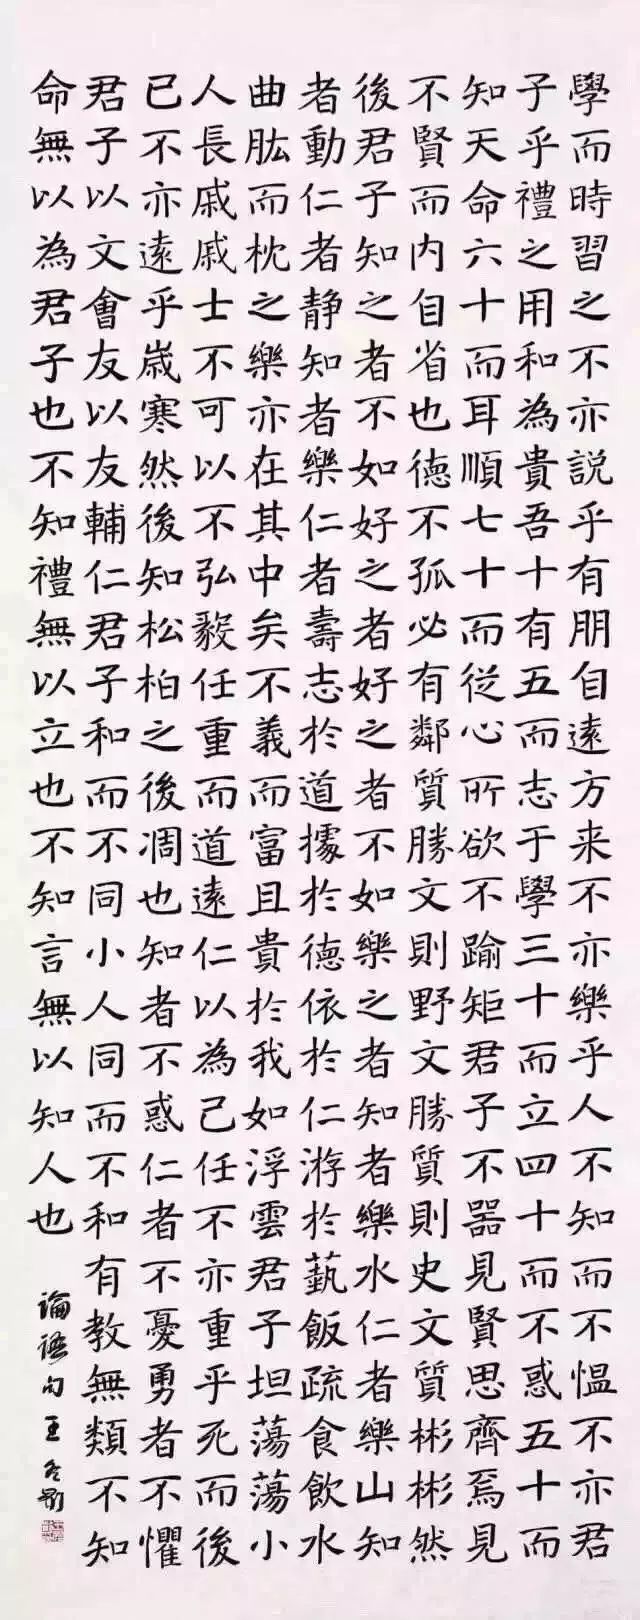 學而時習之不亦説乎有朋自遠方来不亦樂乎人不知而不愠不亦君
子乎禮之用和為貴吾十有五而志于學三十而立四十而不惑五十而
知天命六十而耳順七十而従心所欲不踰矩君子不器見賢思齊焉見
不賢而内自省也德不孤必有鄰質勝文則野文勝質則史文質彬彬然
後君子知之者不如好之者好之者不如樂之者知者樂水仁者樂山知
者動仁者静知者樂仁者壽志於道據於德依於仁游於藝飯疏食飲水
曲肱而枕之樂亦在其中矣不義而富且貴於我如浮雲君子坦蕩蕩小
人長戚戚士不可以不弘毅任重而道遠仁以為己任不亦重乎死而後
已不亦遠乎嵗寒然後知松柏之後凋也知者不惑仁者不憂勇者不懼
君子以文會友以友輔仁君子和而不同小人同而不和有教無類不知
命無以為君子也不知禮無以立也不知言無以知人也
論語句王